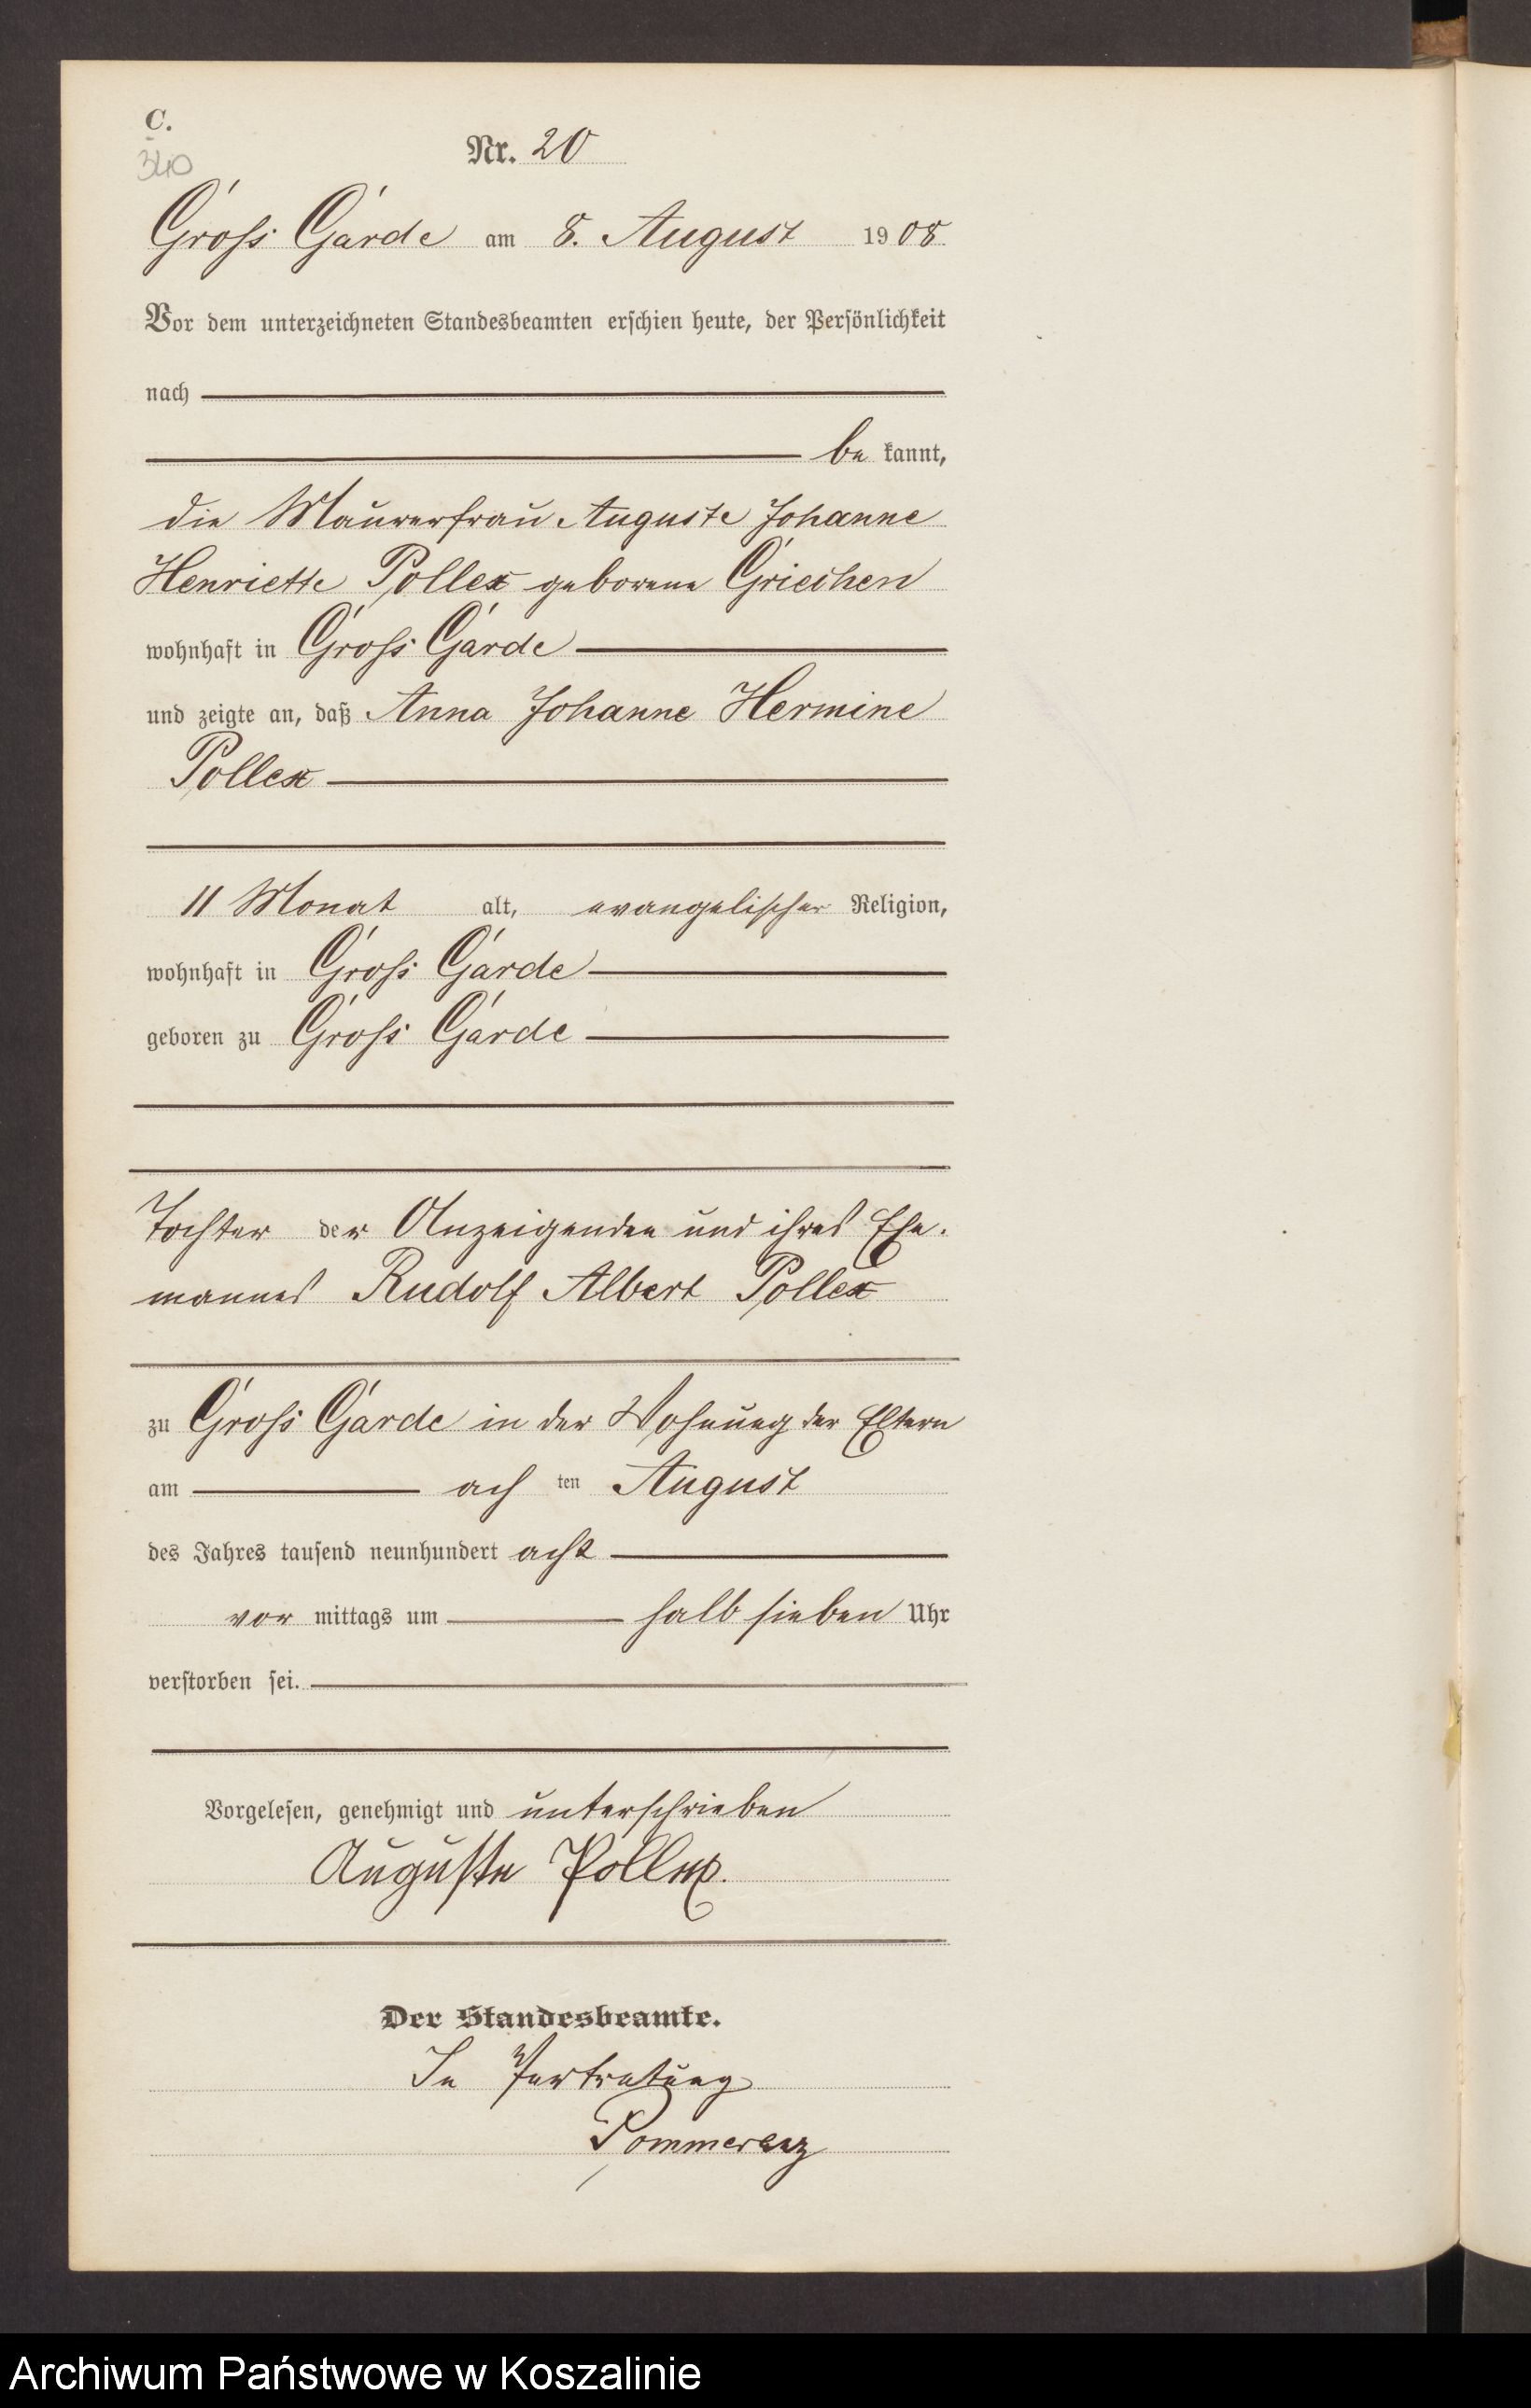 C.
340
Nr. 20
Gross Garde am 8. August 1908
Vor dem unterzeichneten Standesbeamten erschien heute, der Persönlichkeit
nach
be kannt,
die Maurerfrau Auguste Johanne
Henriette Pollex geborene Griechen
wohnhaft in Gross Garde
und zeigte an, daß Anna Johanne Hermine
Pollex
11 Monat alt, evangelischer Religion,
wohnhaft in Gross Garde
geboren zu Gross Garde
Tochter der Anzeigenden und ihres Ehe-
mannes Rudolf Albert Pollex
zu Gross Garde in der Wohnung der Eltern
am ach ten August
des Jahres tausend neunhundert acht
vor mittags um halb sieben Uhr
verstorben sei.
Vorgelesen, genehmigt und unterschrieben
Auguste Pollex.
Der Standesbeamte.
In Vertretung
Pommerenz
Archiwum Państwowe w Koszalinie